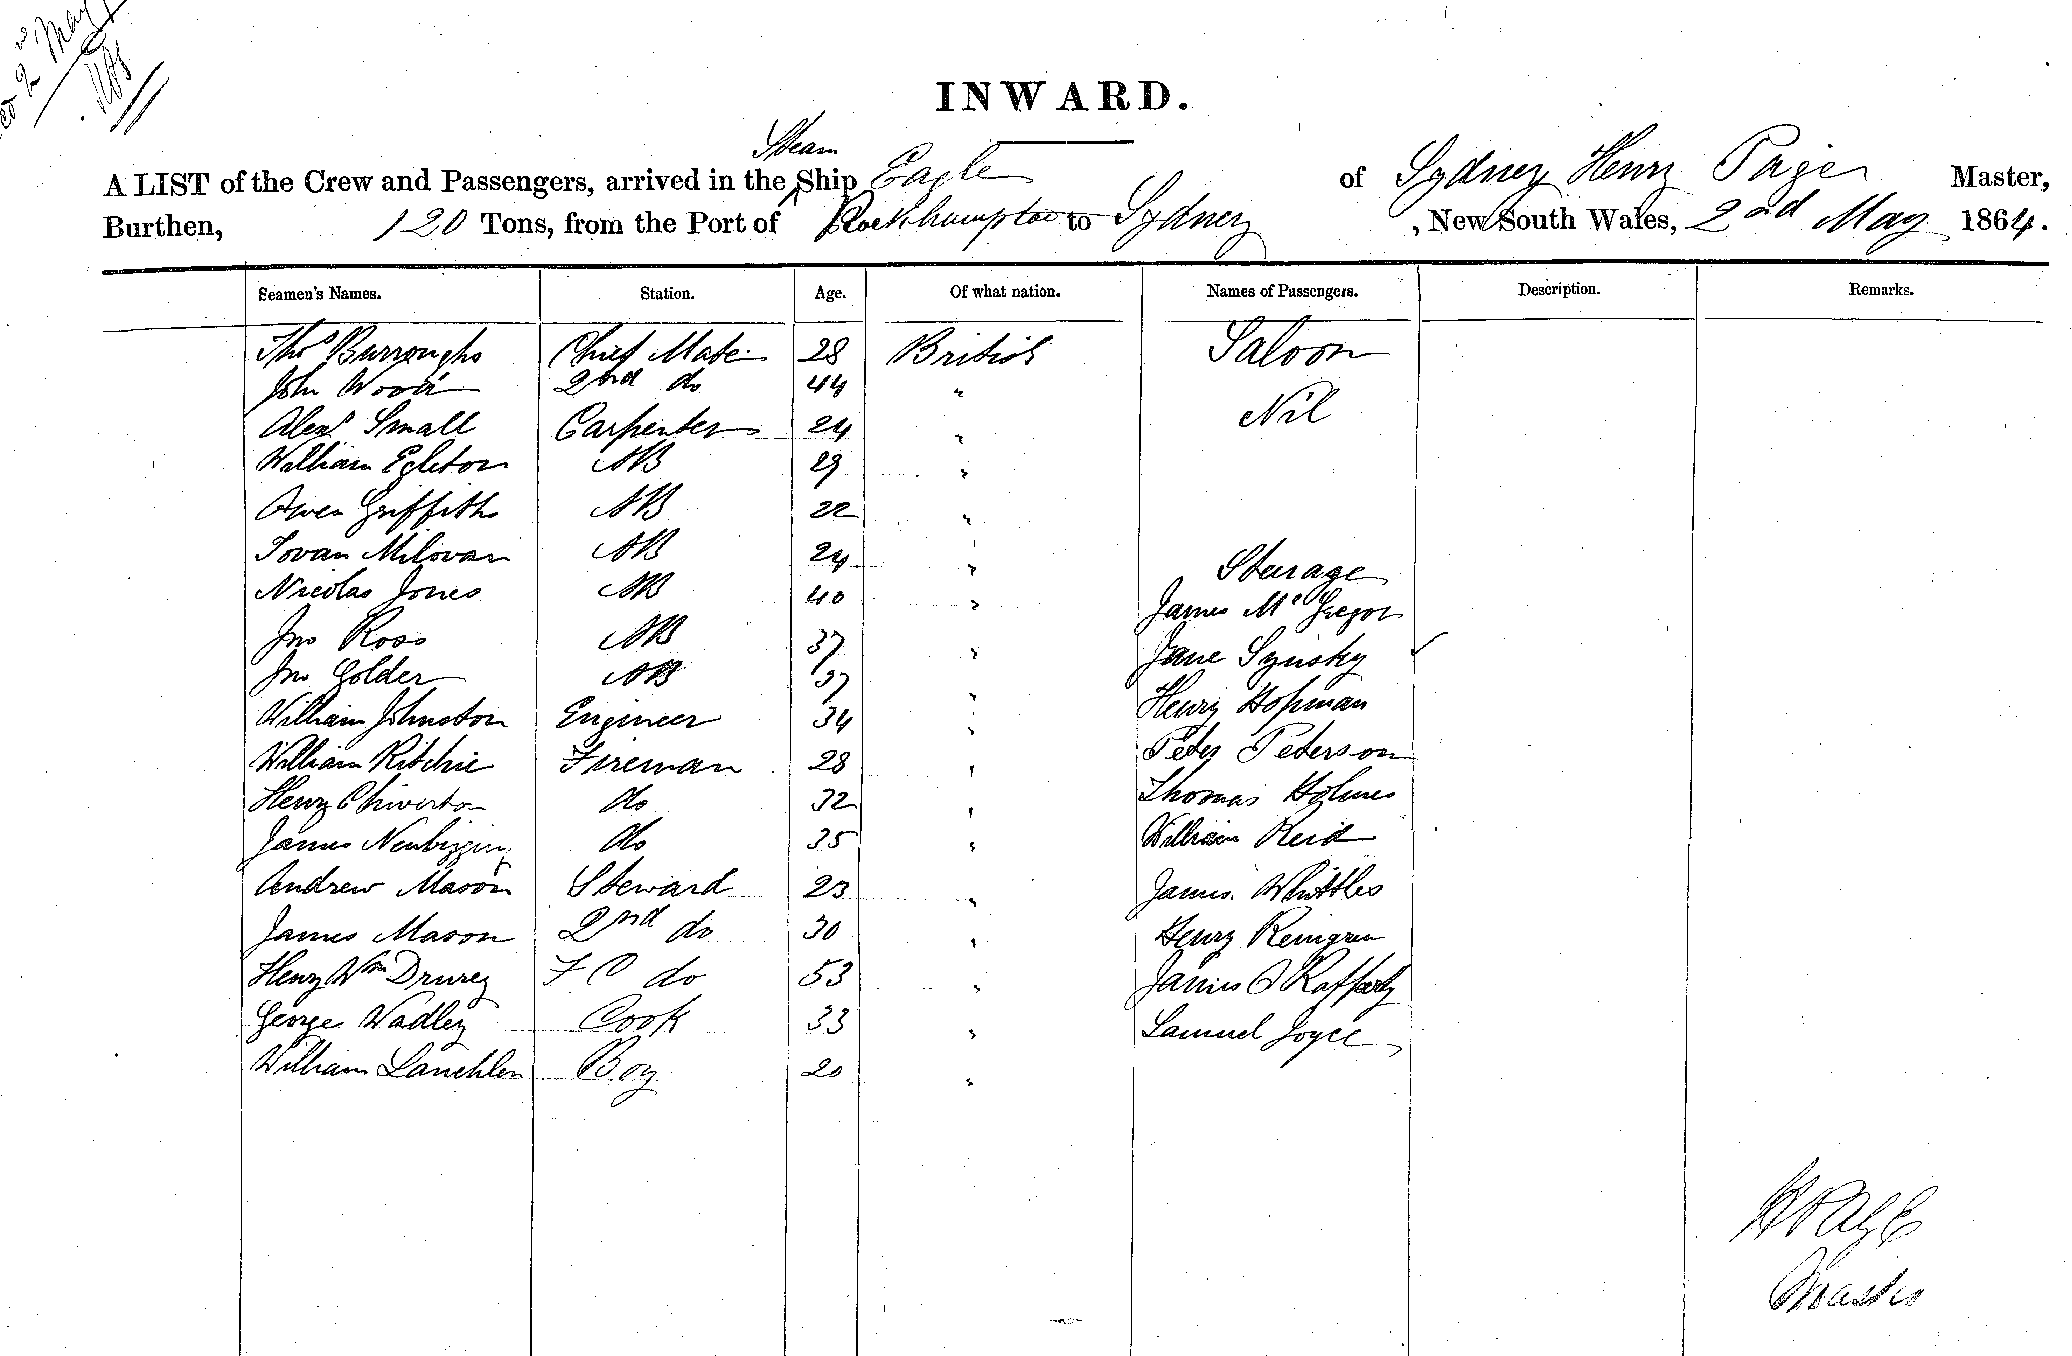 2 May
INWARD.
Steam
A LIST of the Crew and Passengers, arrived in the Ship Eagle of Sydney Henry Paige Master,
Burthen, 120 Tons, from the Port of Rockhampton to Sydney , New South Wales, 2nd May 1864.
Seamen's Names. Station. Age. Of what nation. Names of Passengers. Description. Remarks.
Thos Burroughs Chief Mate 28 British Saloon
John Wood 2nd do 44 "
Alexr Small Carpenter 24 " Nil
William Egleton AB 29 "
Owen Griffiths AB 22 "
Jovan Milovan AB 24 "
Steerage
Nicolas Jones AB 40 " James McGregor
Jno Ross AB 37 " Jane
Jno Golder AB 37 " Henry Hopman
William Johnston Engineer 34 " Peter Peterson
William Ritchie Fireman 28 " Thomas Holmes
Henry Chiverton do 32 " William Reid
James Newbigging do 35 " James Whittles
Andrew Mason Steward 23 " Henry
James Mason 2nd do 30 " James O Rafferty
Henry Wm Drurey F C do 53 " Samuel Joyce
George Wadley Cook 33 "
William Lauchlen Boy 20 "
H Paige
Master